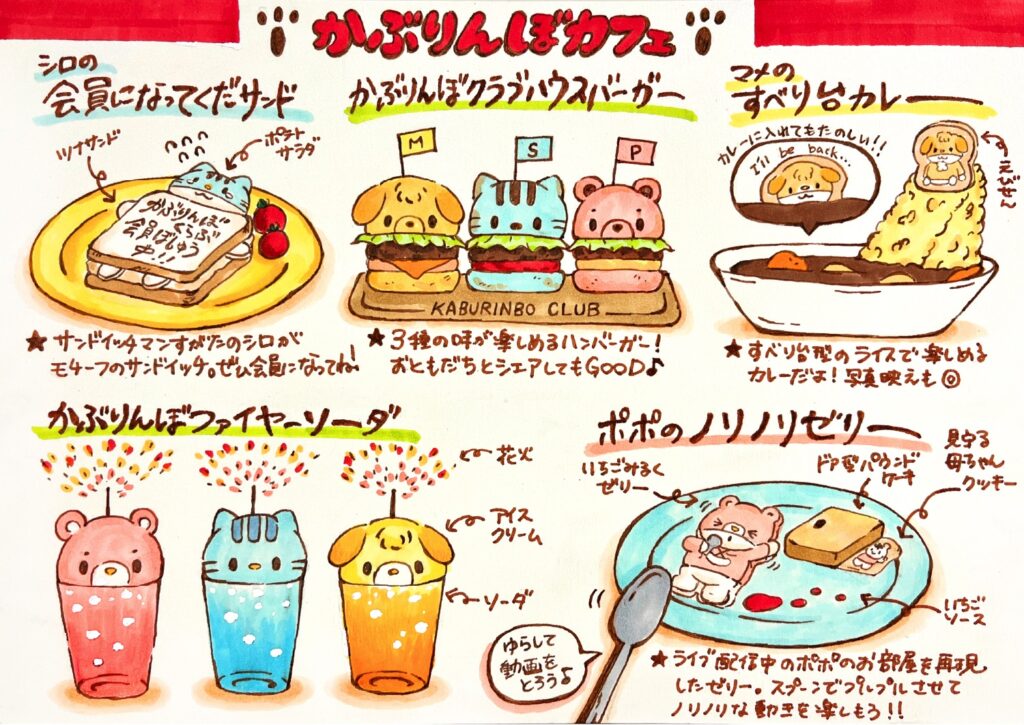 かぶりんぼカフェ
シロの
会員になってくだサンド
ツナサンド
ポテト
サラダ
かぶりんぼ
くらぶ
会員ぼしゅう
中!!
★ サンドイッチマンすがたのシロが
モチーフのサンドイッチ。ぜひ会員になってね!
かぶりんぼクラブハウスバーガー
M
S
P
KABURINBO CLUB
★ 3種の味が楽しめるハンバーガー!
おともだちとシェアしてもGOOD♪
マメの
すべり台カレー
カレーに入れてもたのしい!!
I'll be back...
えびせん
★ すべり台型のライスで楽しめる
カレーだよ!写真映えも◎
かぶりんぼファイヤーソーダ
花火
アイス
クリーム
ソーダ
ポポのノリノリゼリー
いちごみるく
ゼリー
ドア型パウンド
ケーキ
見守る
母ちゃん
クッキー
いちご
ソース
ゆらして
動画を
とろう♪
★ ライブ配信中のポポのお部屋を再現
したゼリー。スプーンでプルプルさせて
ノリノリな動きを楽しもう!!